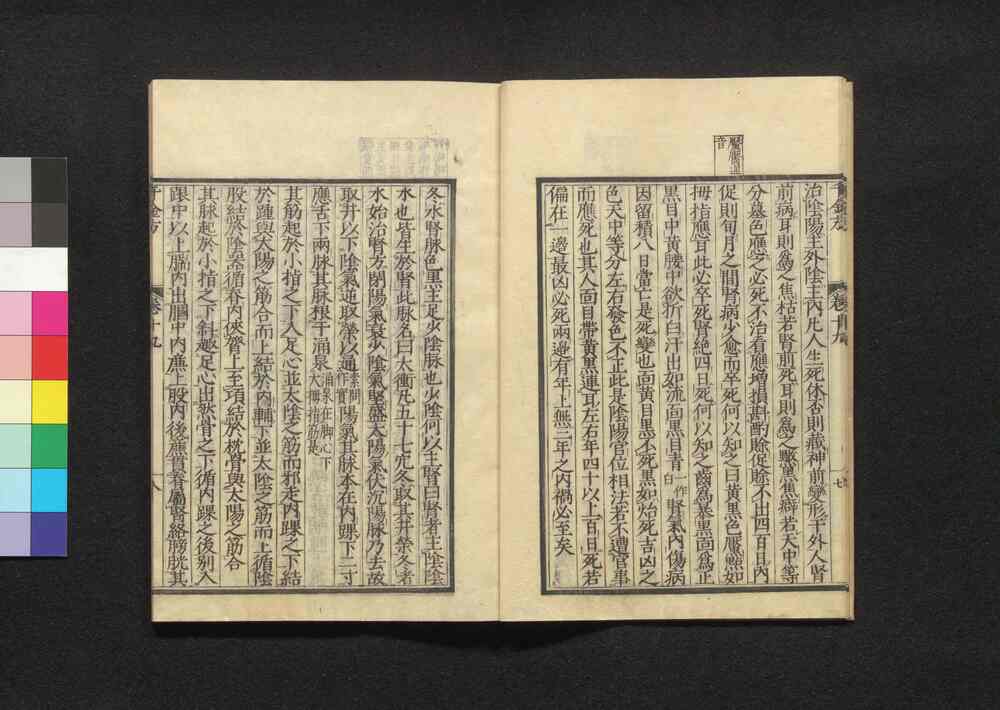 治陰陽主外陰主內凡人生死休否則藏神前變形于外人腎
前病耳則為之焦枯若腎前死耳則為之黧黑焦癖若天中等
分墓色應之必死不治看應增損斟酌賒促賒不出四百日內
促則旬月之間腎病少愈而卒死何以知之曰黃黑色黶點如
拇指應耳此必卒死腎絕四日死何以知之齒為暴黑面為正
黑目中黃腰中欲折白汗出如流面黑目青一作白腎氣內傷病
因留積八日當亡是死變也面黃目黑不死黑如炲死吉凶之
色天中等分左右發色不正此是陰陽官位相法若不遭官事
而應死也其人面目帶黃黑連耳左右年四十以上百日死若
偏在一邊最凶必死兩邊有年上無三年之內禍必至矣
千金方 卷十九 七
冬水腎脉色黑主足少陰脉也少陰何以主腎曰腎者主陰陰
水也皆生於腎此脉名曰太衝凡五十七穴冬取其井滎冬者
水始治腎方閉陽氣衰少陰氣堅盛太陽氣伏沉陽脉乃去故
取井以下陰氣逆取滎以通素問作實陽氣其脉本在內踝下二寸
應舌下兩脉其脉根于涌泉涌泉在脚心下大拇指筋是
其筋起於小指之下入足心並太陰之筋而邪走內踝之下結
於踵與太陽之筋合而上結於內輔下並太陰之筋而上循陰
股結於陰器循脊內俠膂上至項結於枕骨與太陽之筋合
其脉起於小指之下斜趣足心出然骨之下循內踝之後別入
跟中以上腨內出膕中內廉上股內後廉貫脊屬腎絡膀胱其
千金方 卷十九 八